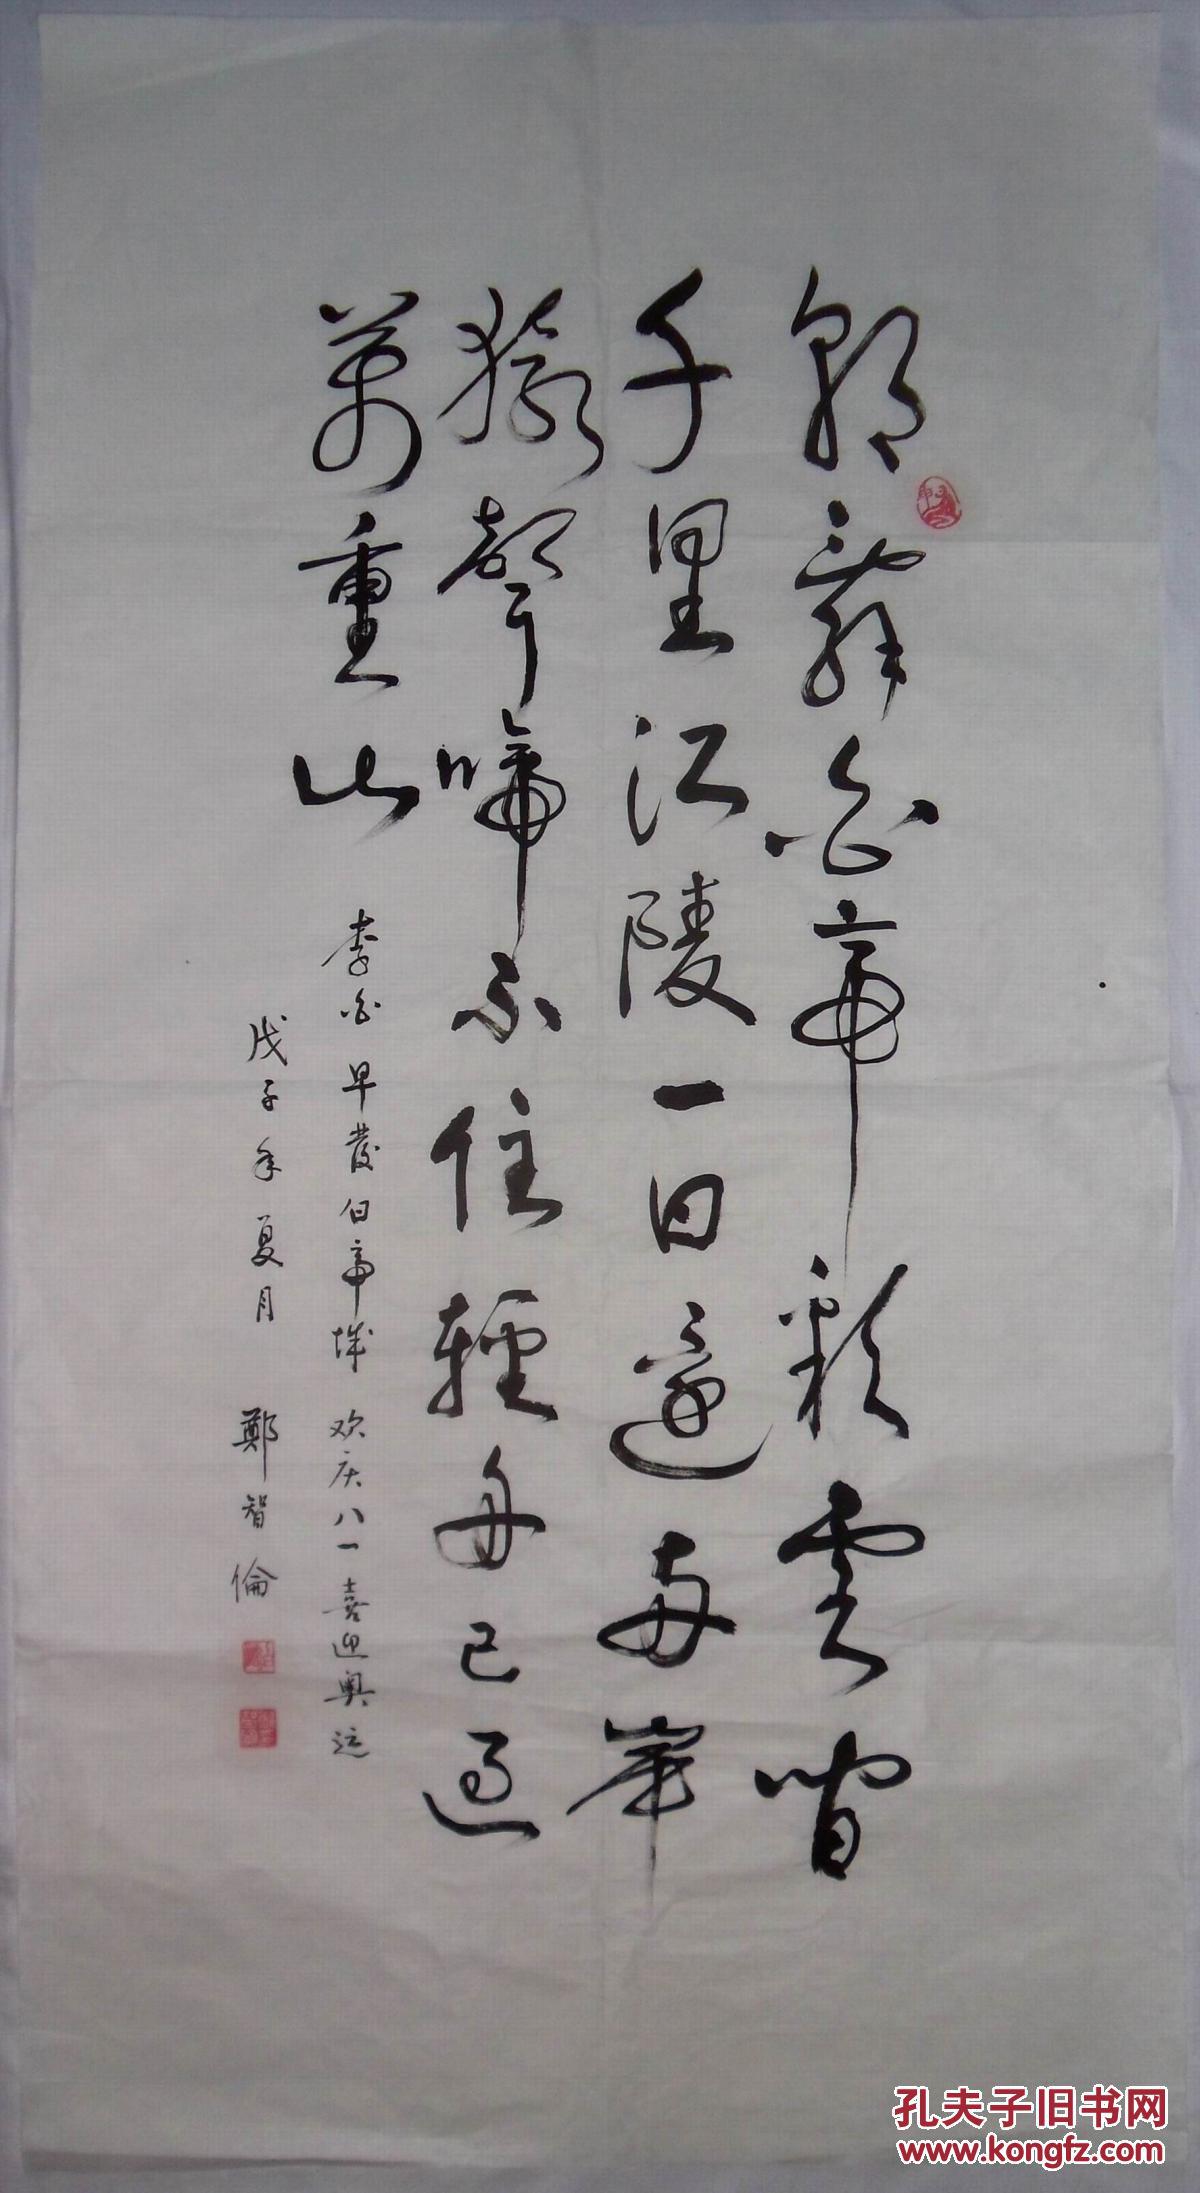 朝辭白帝彩雲間
千里江陵一日還两岸
猿聲啼不住輕舟已過
萬重山
李白早發白帝城 欢庆八一喜迎奥运
戊子年夏月 鄭智倫
孔夫子旧书网
www.kongfz.com